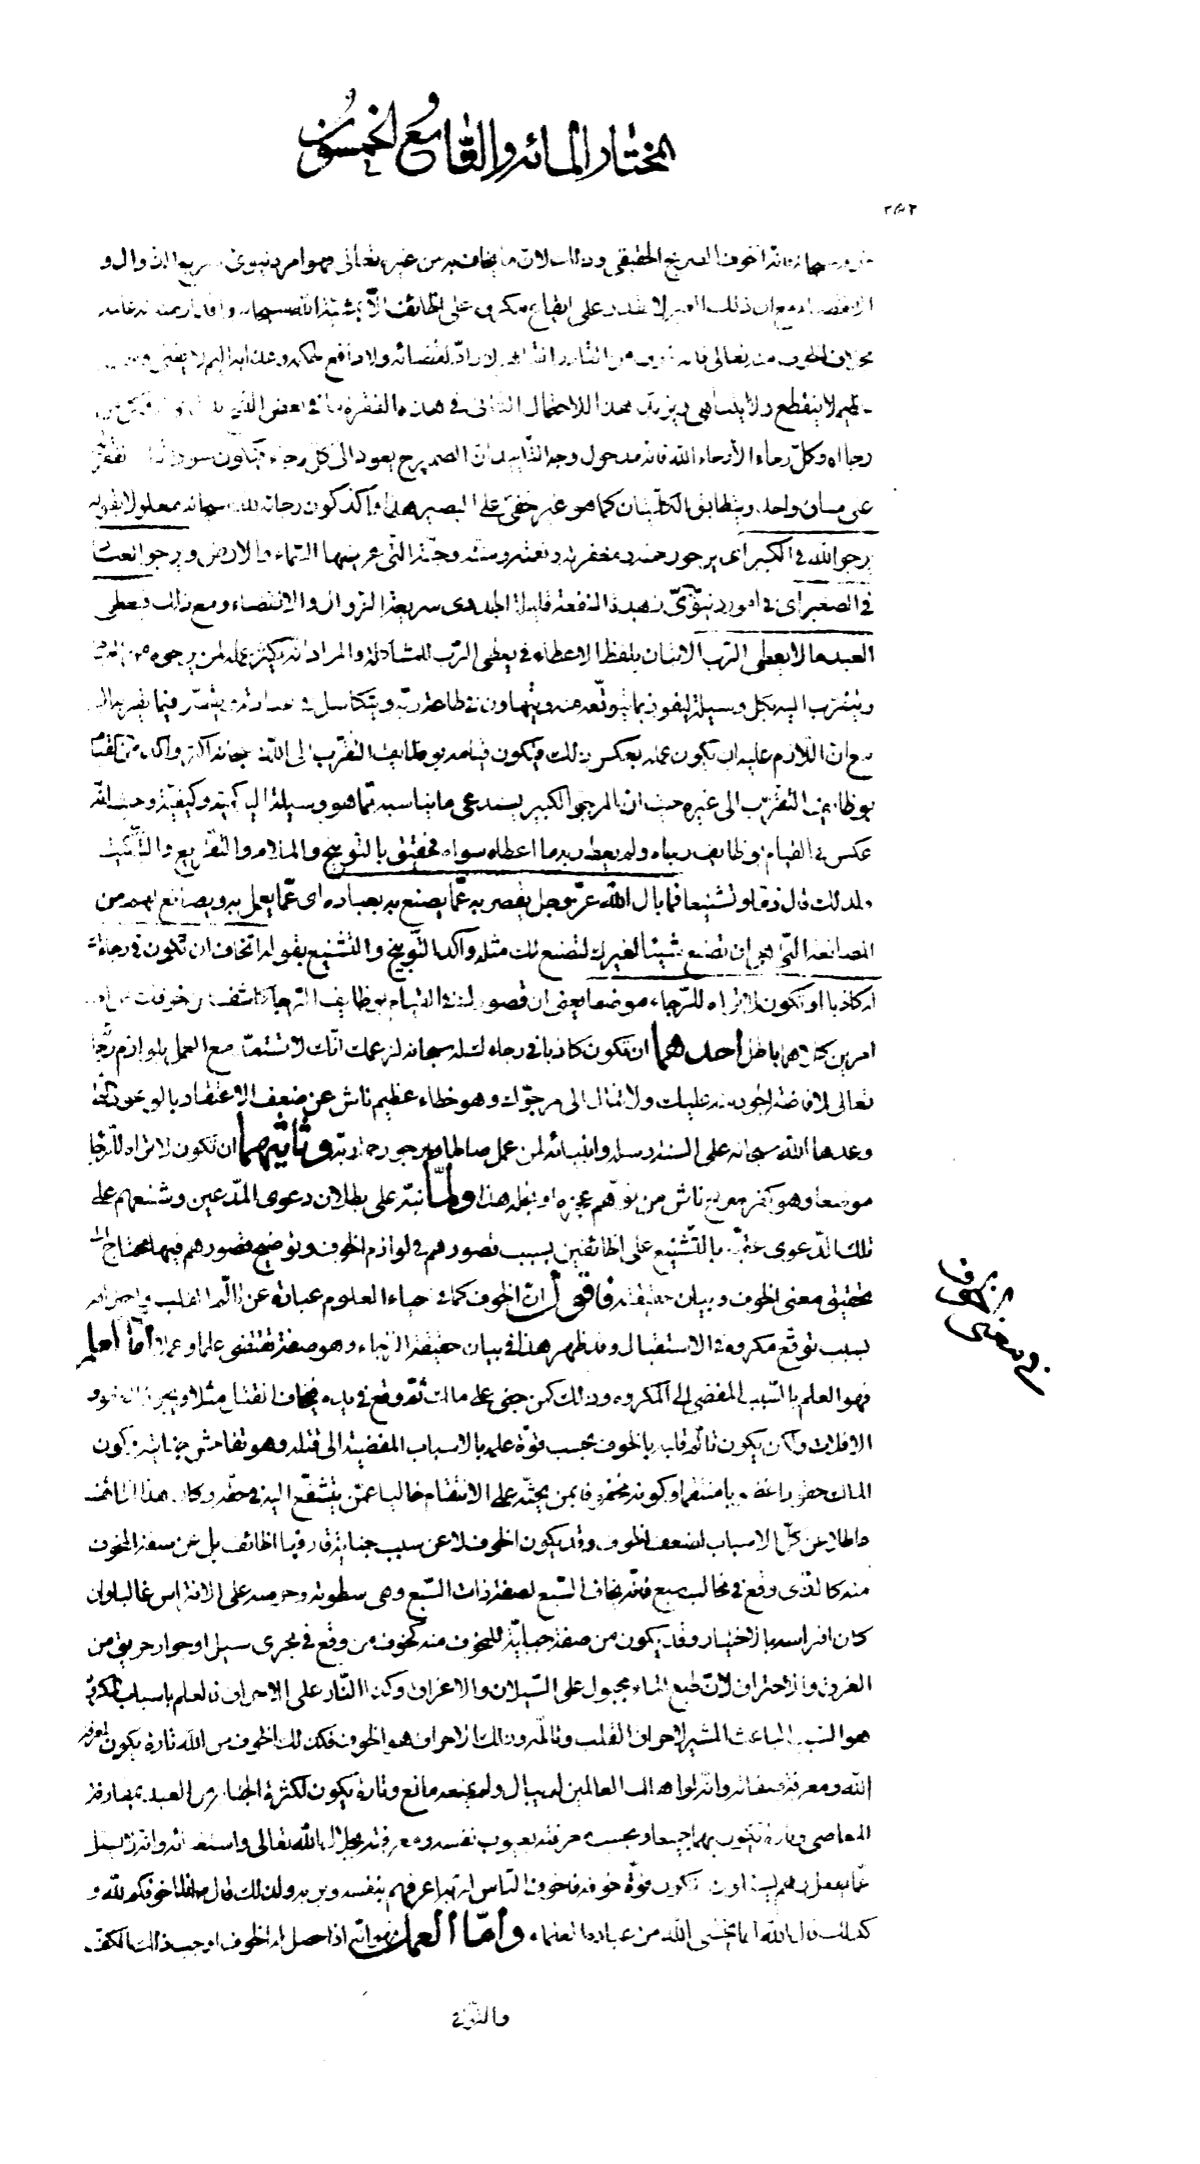 المختار المائه والتاسع والخمسون
فانه الخوف الصريح الحقيقى وذلك لان ما يخاف به من غيره تعالى فهو امر دنيوى سريع الزوال و
مع ان ذلك الغير لا يقدر على ايقاع مكروه على الخائف الّا بمشيّة الله سبحانه
بخلاف الخوف منه تعالى لا رادّ لقضائه ولا دافع لحكمه وعذابه اليم لا يفتر
لا ينقطع ولا يتناهى ويؤيّد هذا الاحتمال الثانى فى هذه الفقرة ما فى بعض النسخ
رجاه وكلّ رجاء الّا رجاء الله فانه مدخول وجه التأييد انّ الضمير يرجع يعود الى كلّ رجاء فيكون سوق
على مساق واحد ويتطابق الكليّتان كما هو غير خفىّ على البصير هذا واكّد كون رجائه لله سبحانه معلولا بقوله
يرجو الله فى الكبير اى يرجو رحمته ومغفرته ونعمته ومنّته وجنّته الّتى عرضها السّماء والارض ويرجو العباد
فى الصغير اى فى امور دنيويّة زهيدة المنفعة قليلة الجدوى سريعة الزوال والانقضاء ومع ذلك فيعطى
العبد ما لا يعطى الربّ الاتيان بلفظ الاعطاء فى يعطى الربّ للمشاكلة والمراد انه يكثر عمله لمن يرجوه من العباد
ويتقرّب اليه بكلّ وسيلة ليفوز بما يتوقّعه منه ويتهاون فى طاعة ربّه ويتكاسل فى عبادته ويقصّر فيما يقرّبه اليه
مع انّ اللّازم عليه ان يكون عمله بعكس ذلك فيكون قيامه بوظايف التقرّب الى الله سبحانه اكثر واكد من قيامه
بوظايف التقرّب الى غيره حيث انّ المرجوّ الكبير يستدعى ما يناسبه ممّا هو وسيلة اليه كميّة وكيفيّة وحيث انّه
عكس فى القيام بوظايف رجاه ولم يعط ربه ما اعطاه سواه فحقيق بالتوبيخ والملام والتقريع والتّبكيت
ولذلك قال ذمّا وتشنيعا فما بال الله عزّ وجل يقصر به عمّا يصنع به بعباده اى عمّا يعمل به ويصانع بهم من
المصانعة الّتى هى ان تصنع شيئا لغيرك لتصنع لك مثله واكّد التّوبيخ والتّشنيع بقوله اتخاف ان تكون فى رجائك
له كاذبا او تكون لا تراه للرّجاء موضعا يعنى ان قصورك فى القيام بوظايف الرّجاء
امرين كلاهما باطل احدهما ان تكون كاذبا فى رجاه لله سبحانه لزعمك انّك لا تستعدّ مع العمل بلوازم رجائه
تعالى لافاضة الجود منه عليك ولا تنال الى مرجوّك وهو خطاء عظيم ناش عن ضعف الاعتقاد بالوعود الّتى
وعدها الله سبحانه على السنة رسله وانبيائه لمن عمل صالحا ويرجو رحمة ربّه وثانيهما ان تكون لا تراه للرّجاء
موضعا وهو كفر صريح ناش من توهّم عجزه او بخله هذا ولمّا نبّه على بطلان دعوى المدّعين وشنعهم على
تلك الدّعوى عقّبه بالتّشنيع على الخائفين بسبب قصورهم فى لوازم الخوف وتوضيح قصورهم فيها محتاج الى
تحقيق معنى الخوف وبيان حقيقته فاقول انّ الخوف كما فى احياء العلوم عبارة عن تألّم القلب واحتراقه
بسبب توقّع مكروه فى الاستقبال وقد ظهر هذا فى بيان حقيقة الرّجاء وهو صفة تقتضى علما وعملا امّا العلم
فهو العلم بالسّبب المفضى الى المكروه وذلك كمن جنى على ملك ثمّ وقع فى يده فيخاف القتل مثلا ويجوز العفو و
الافلات ولكن يكون تألّم قلبه بالخوف بحسب قوّة علمه بالاسباب المفضية الى قتله وهو تفاحش جنايته وكون
الملك حقودا غضوبا منتقما وكونه محفوفا بمن يحثّه على الانتقام خاليا عمّن يتشفّع اليه فى حقّه وكان هذا الخائف
عاطلا عن كلّ الاسباب لضعف الخوف وقد يكون الخوف لا عن سبب جناية قارفها الخائف بل عن صفة المخوف
منه كالّذى وقع فى مخالب سبع فانّه يخاف السّبع لصفة ذات السّبع وهى سطوته وحرصه على الافتراس غالبا وان
كان افتراسه بالاختيار وقد يكون من صفة جبليّة للمخوف منه كخوف من وقع فى مجرى سيل او جوار حريق من
الغرق والاحتراق لانّ طبع الماء مجبول على السّيلان والاغراق وكذا النّار على الاحراق فالعلم باسباب المكروه
هو السّبب الباعث المثير لاحراق القلب وتألّمه وذلك الاحراق هو الخوف فكذلك الخوف من الله تارة يكون لمعرفة
الله ومعرفة صفاته وانّه لو اهلك العالمين لم يبال ولم يمنعه مانع وتارة يكون لكثرة الجناية من العبد بمقارفة
المعاصى وتارة يكون بهما جميعا وبحسب معرفته بعيوب نفسه ومعرفته بجلال الله تعالى واستغنائه وانّه لا يسئل
عمّا يفعل وهم يسئلون تكون قوّة خوفه فاخوف النّاس لربّه اعرفهم بنفسه وبربه ولذلك قال انا اخوفكم لله و
كذلك قال الله انما يخشى الله من عباده العلماء وامّا العمل فهو انّه اذا حصل له الخوف اوجب ذلك الكفّ
والتّوبة
فى معنى الخوف